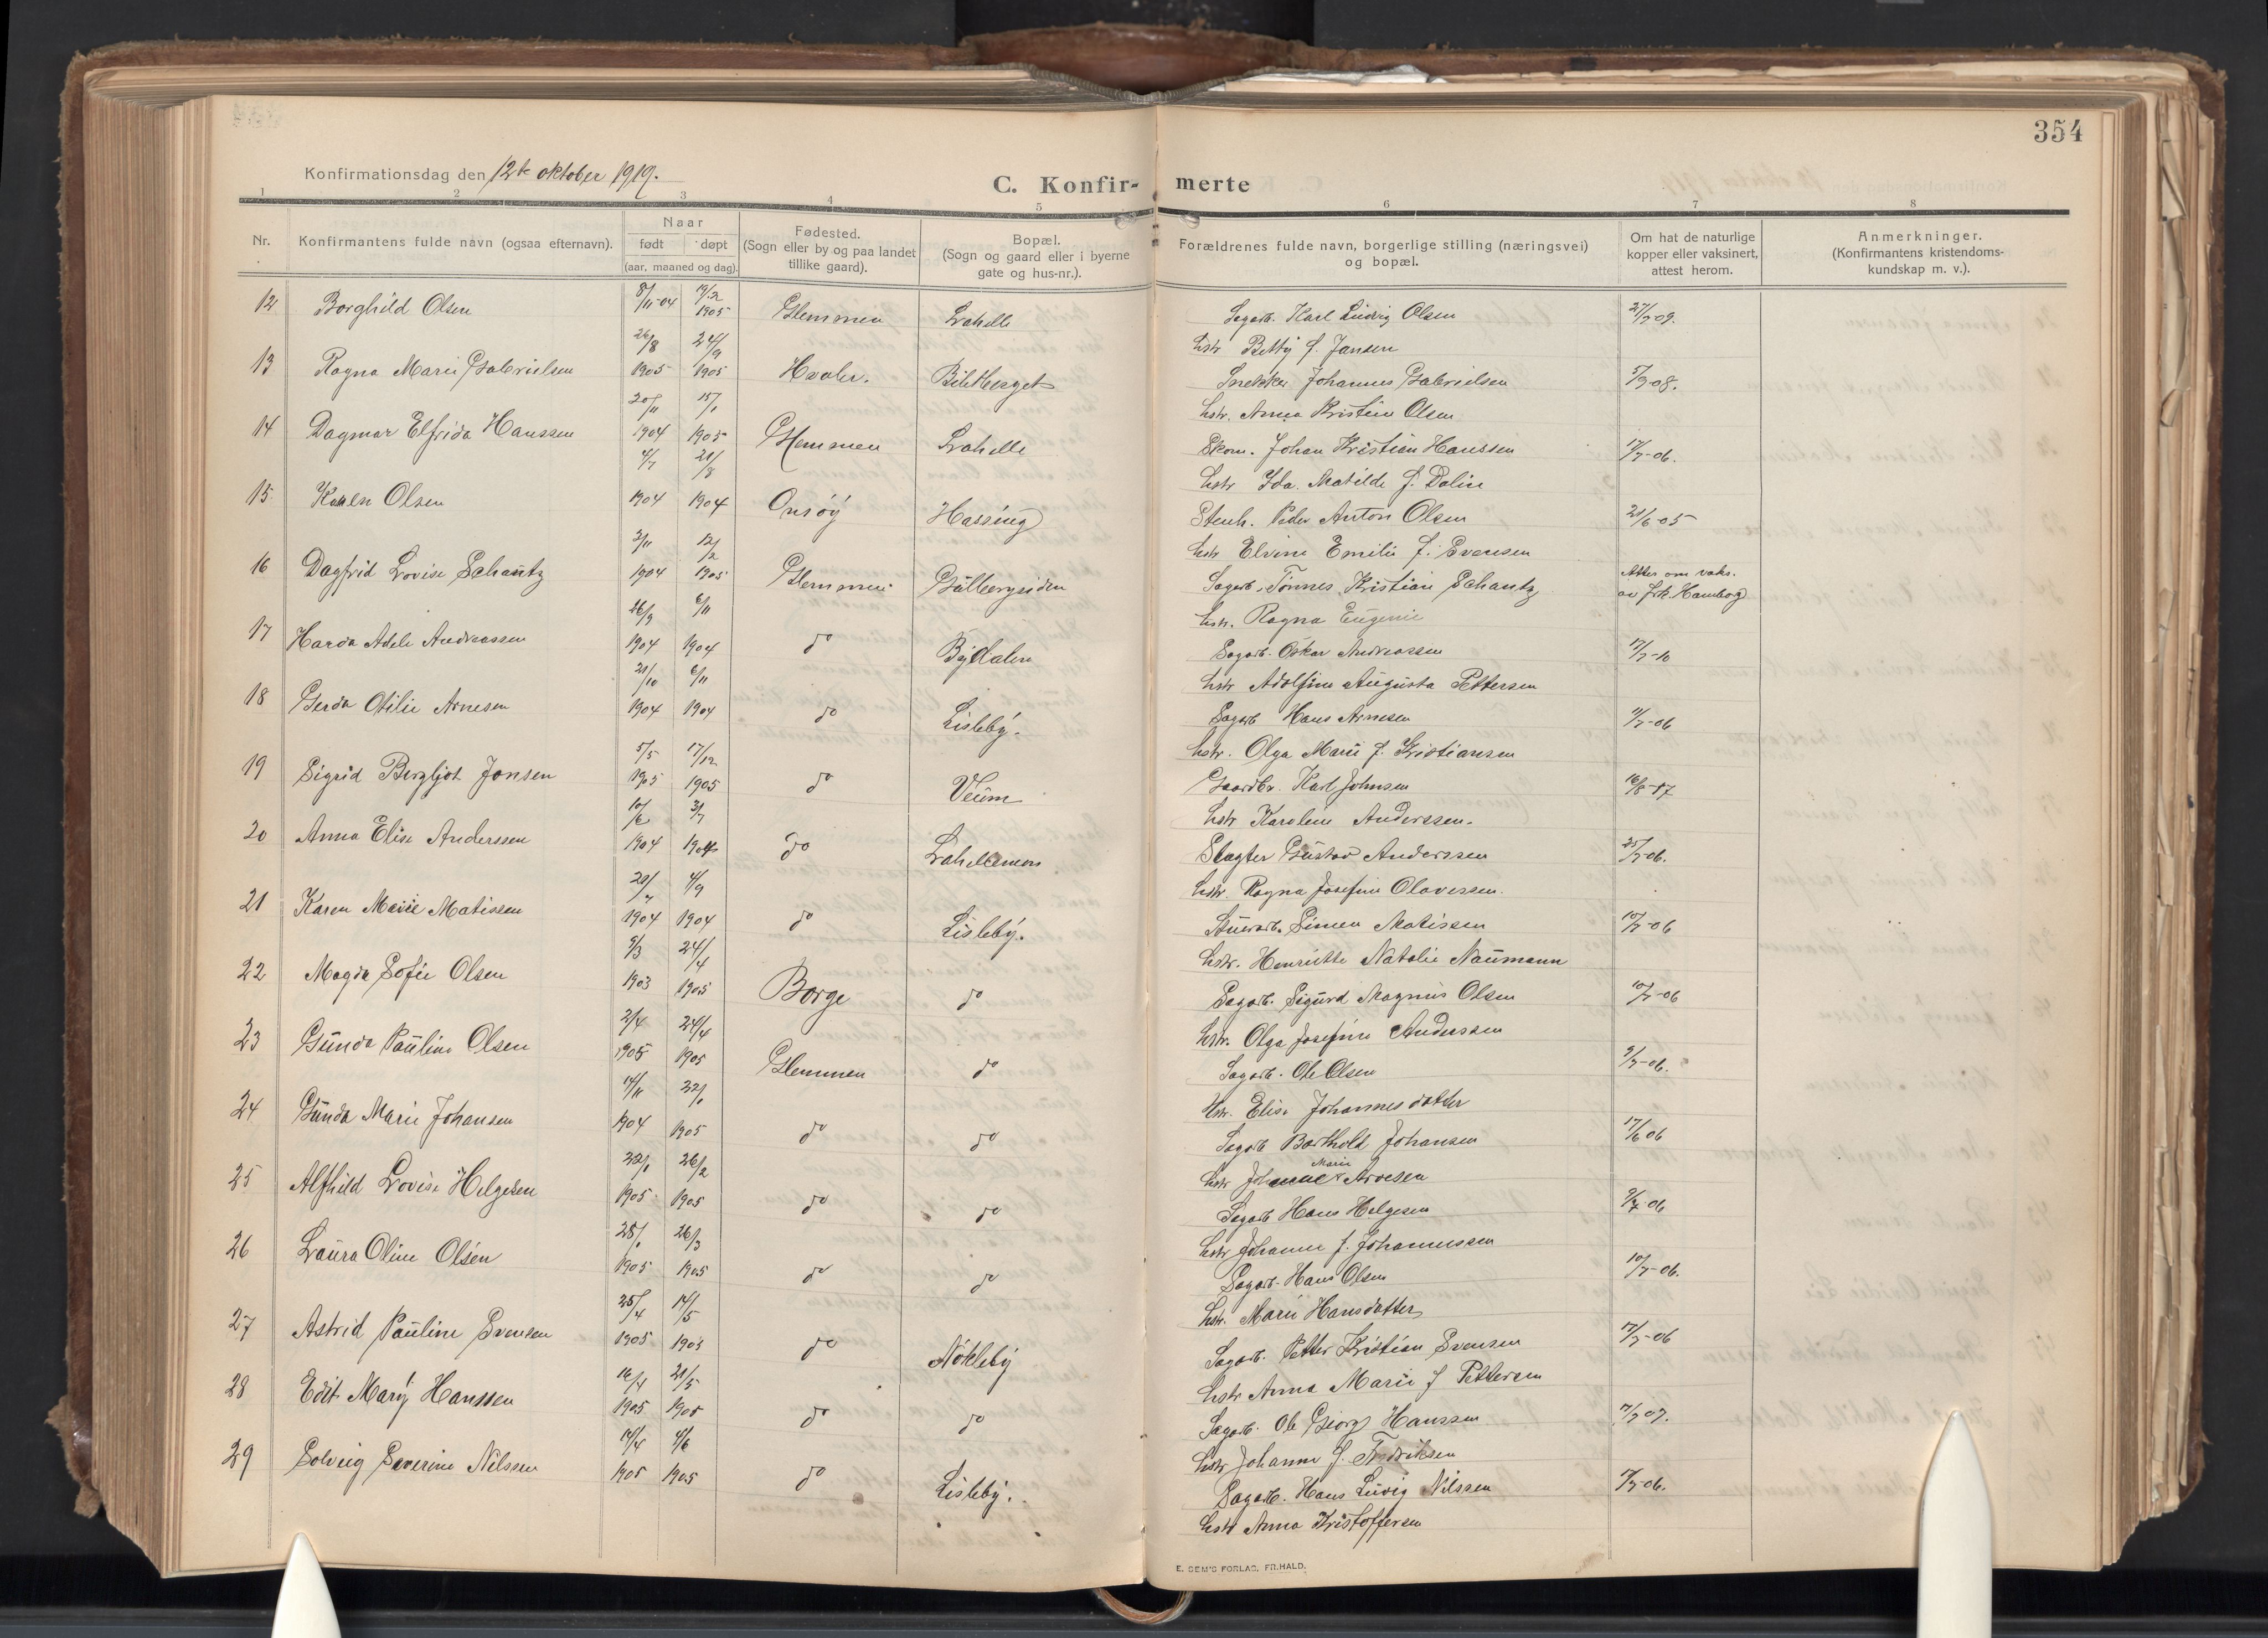 354
Konfirmationsdag den 12te oktober 1919.
C. Konfir- merte
1 2 3 4 5 6 7 8
Nr.
Konfirmantens fulde navn (ogsaa efternavn).
Naar
født døpt
(aar, maaned og dag).
Fødested.
(Sogn eller by og paa landet
tillike gaard).
Bopæl.
(Sogn og gaard eller i byerne
gate og hus-nr.).
Forældrenes fulde navn, borgerlige stilling (næringsvei)
og bopæl.
Om hat de naturlige
kopper eller vaksinert,
attest herom.
Anmerkninger.
(Konfirmantens kristendoms-
kundskap m. v.).
12 Borghild Olsen 8/11-04 19/2 1905 Glemmen Lahelle Sagarb. Karl Ludvig Olsen 27/7 09.
hstr Betty f. Jansen
13 Ragna Marie Gabrielsen 26/8 1905 24/9 1905 Hvaler. Bilitberget Snekker Johannes Gabrielsen 5/9-08.
hstr. Anna Kristine Olsen
14 Dagmar Elfrida Hanssen 20/11 1904 15/1 1905 Glemmen Lahelle Skom. Johan Kristian Hanssen 17/7-06.
hstr Ida Matilde f. Dalin
15 Karen Olsen 4/7 1904 21/8 1904 Onsøy Hassing Stenh. Peder Anton Olsen 21/6-05
hstr Elvine Emilie f. Evensen
16 Dagfrid Lovise Schantz 3/11 1904 12/2 1905 Glemmen Gulbergsiden Sagarb. Tønnes Kristian Schantz Attes om vaks.
av Frk. Hambog
hstr. Ragna Eugenie
17 Harda Adele Andreassen 26/9 1904 6/11 1904 do Bydalen Sagarb. Oskar Andreassen 17/7-10
hstr Adolfine Augusta Pettersen
18 Gerda Otilie Arnesen 21/10 1904 6/11 1904 do Lisleby. Sagarb Hans Arnesen 11/7-06
hstr. Olga Marie f. Kristiansen
19 Sigrid Bergljot Jonsen 5/5 1905 17/12 1905 do Veum Gaardbr. Karl Johnsen 16/8-17
hstr Karoline Anderssen.
20 Anna Elise Anderssen 10/6 1904 31/7 1904 do Lahellemoen Slagter Gustav Anderssen 25/7-06.
hstr. Ragna Josefine Olavessen.
21 Karen Marie Matissen 20/7 1904 4/9 1904 do Lisleby. Stuerarb. Simen Matissen 10/7-06
hstr. Henriette Natalie Naumann
22 Magda Sofie Olsen 9/3 1903 24/4 1905 Borge do Sagarb. Sigurd Magnus Olsen 10/7-06
hstr. Olga Josefine Anderssen
23 Gunda Pauline Olsen 2/4 1905 24/4 1905 Glemmen do Sagarb. Ole Olsen 9/7-06.
Hstr. Elise Johannesdatter
24 Gunda Marie Johansen 14/11 1904 22/1 1905 do do Sagarb Barthold Johansen 17/6 06
hstr Johanne Marie Arvesen
25 Alfhild Lovise Helgesen 22/1 1905 26/2 1905 do do Sagarb Hans Helgesen 9/7-06
hstr Johanne f. Johannessen
26 Laura Oline Olsen 28/1 1905 26/3 1905 do do Sagarb. Hans Olsen 10/7-06.
hstr. Marie Hansdatter
27 Astrid Pauline Svensen 25/4 1905 14/5 1905 do Nökleby Sagarb. Petter Kristian Svensen 17/7-06
hstr Anna Marie f Pettersen
28 Edit Mary Hanssen 16/4 1905 21/5 1905 do do Sagarb. Ole Georg Hanssen 17/7 07.
hstr Johanne f. Fredriksen
29 Solveig Severine Nilssen 14/4 1905 4/6 1905 do Lisleby. Sagarb. Hans Ludvig Nilssen 17/7-06.
hstr Anna Kristoffersen
E. SEM'S FORLAG, FR.HALD.